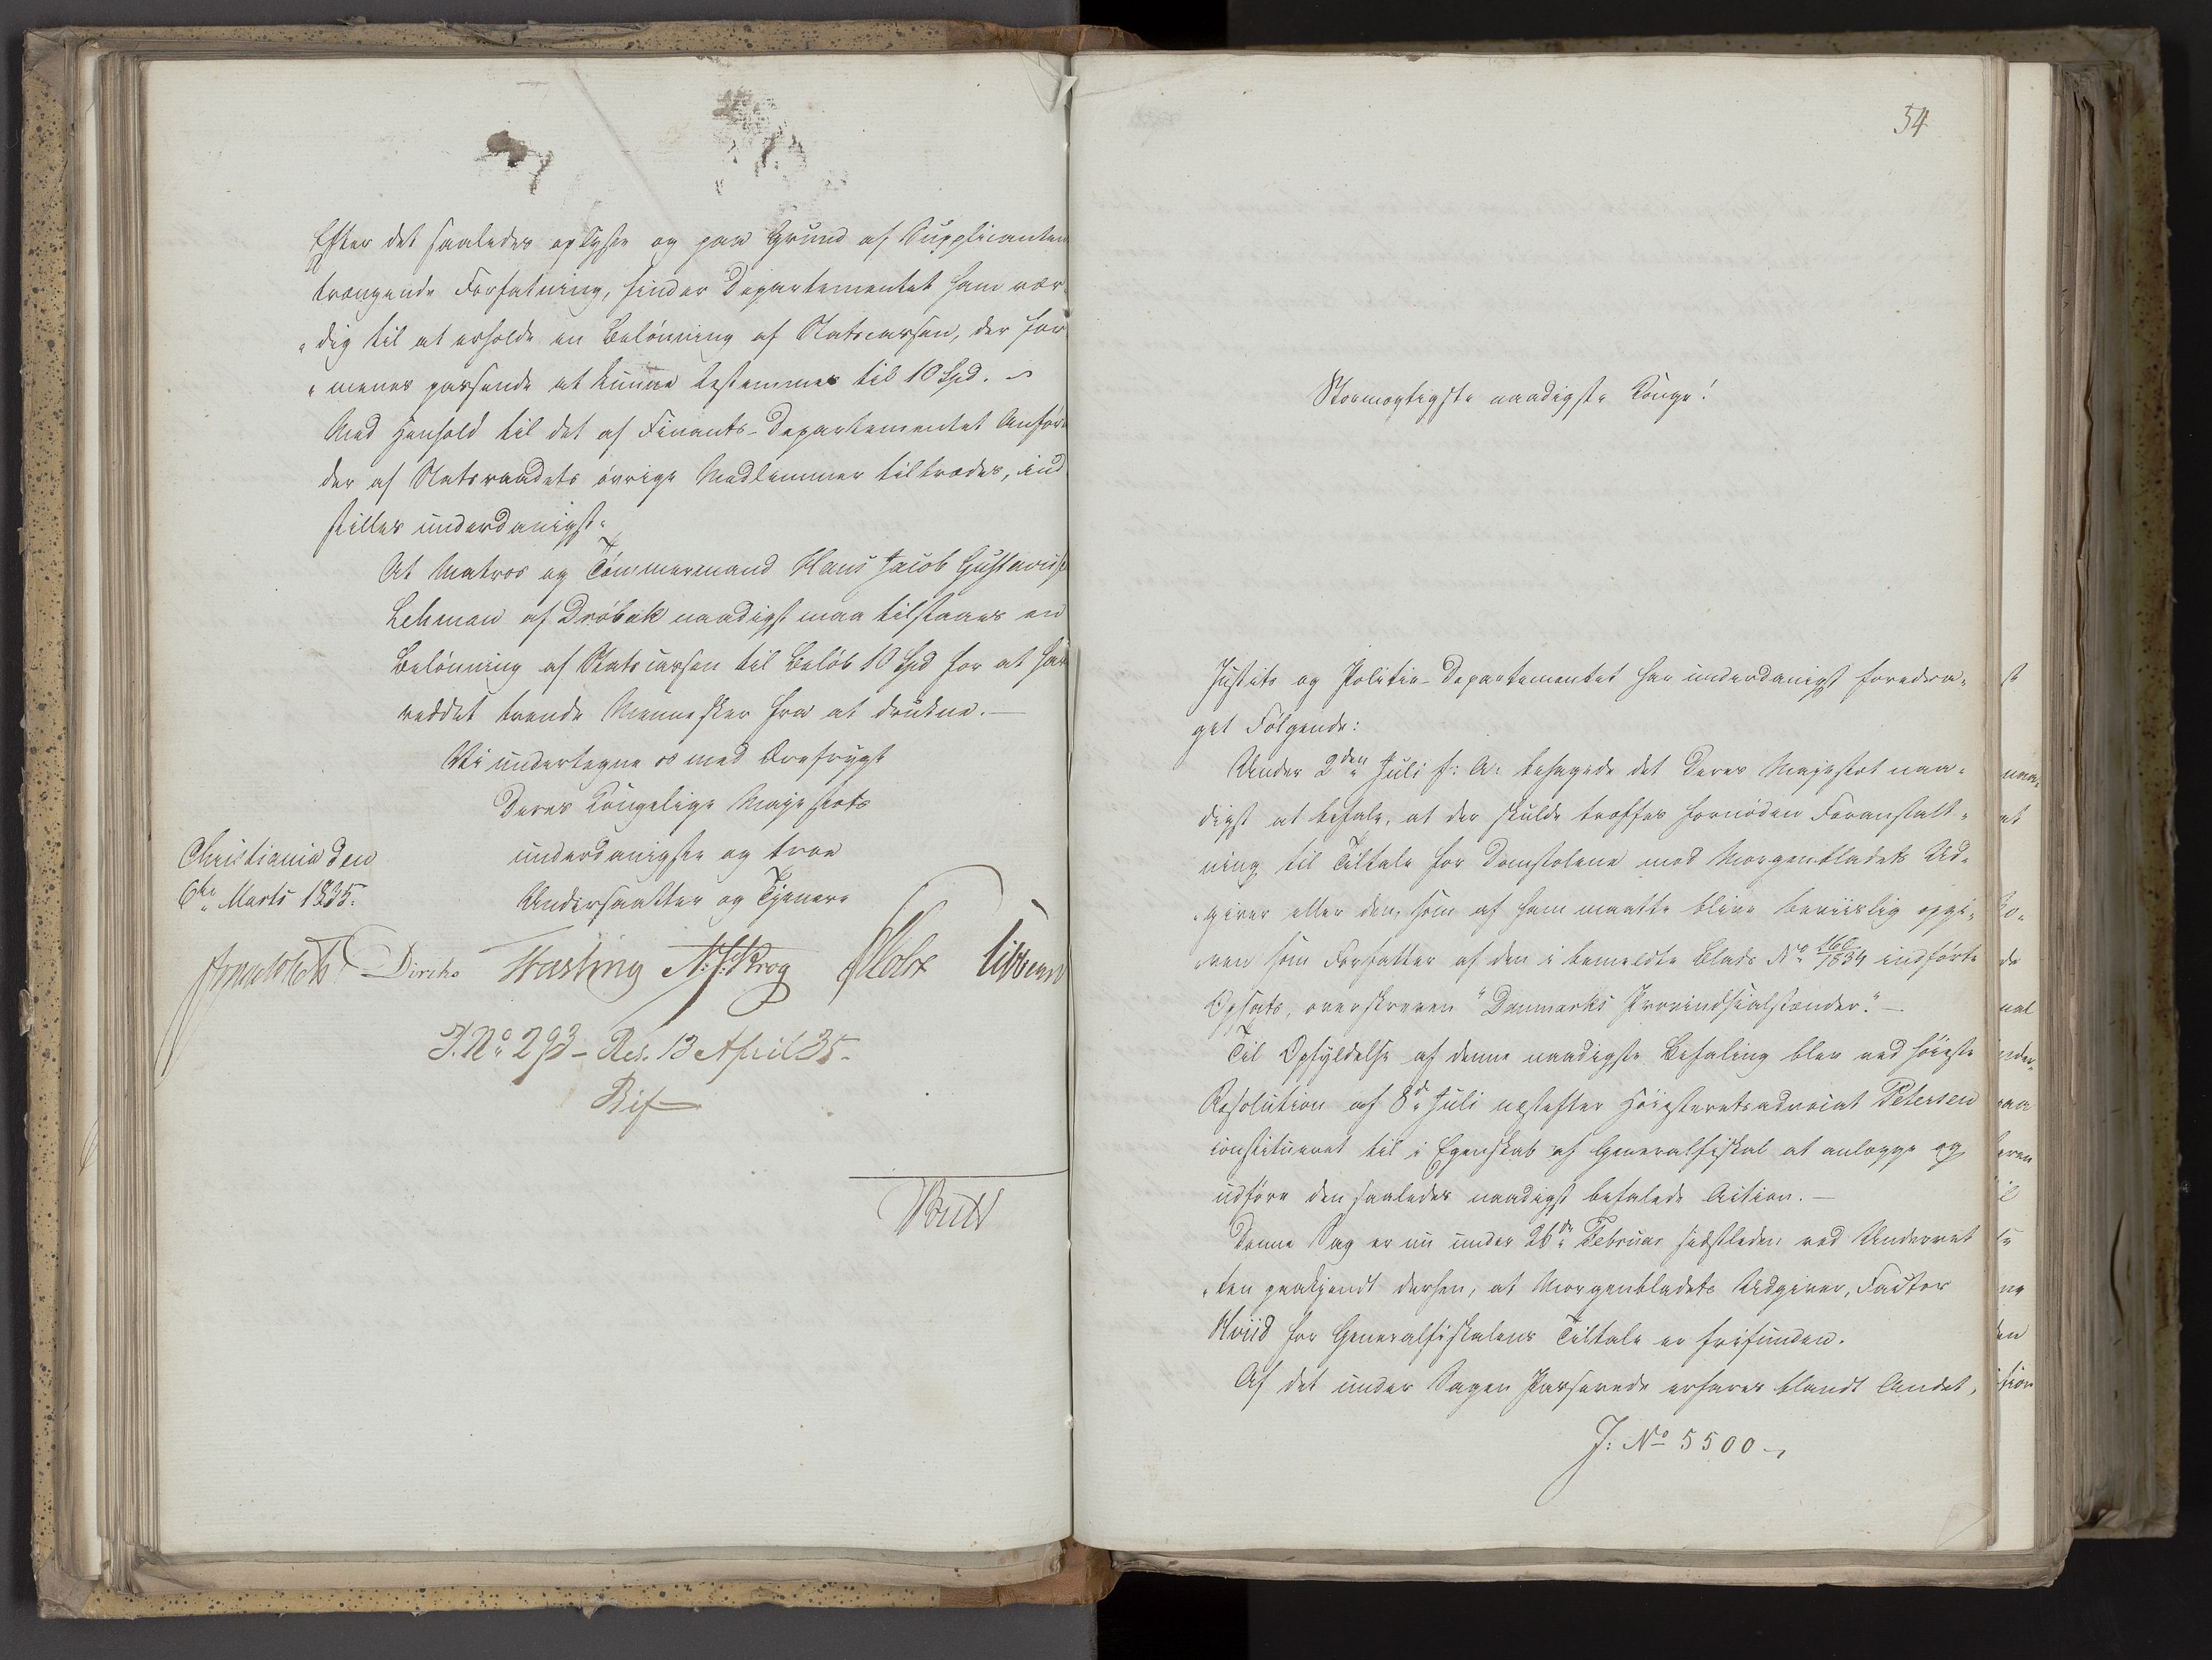 Efter det saaledes oplyste og paa Grund af Supplicanten
trængende Forfatning, finder Departementet ham vær-
dig til at erholde en Belönning af Statscassen, der for-
menes passende at kunne bestemmes til 10 Spd.
Med Henhold til det af Finants-Departementet Anför
der af Statsraadets övrige Medlemmer tiltrædes, ind
stilles underdanigst:
At Matros og Tömmermand Hans Jacob Gustavus
Lehman af Dröbak naadigst maa tilstaaes en
Belönning af Statscassen til Belöb 10 Spd for at have
reddet trende Mennesker fra at drukne.—
Vi undertegne os med Ærefrygt
Deres Kongelige Majestæts
underdanigste og troe
Undersaatter og Tjenere
Christiania den
6te Marts 1835.
Diriks Fasting N: J: Krog Holst Vibe
J. No 293 – Res. 13 April 35.
Bif
54
Stormægtigste naadigste Konge!
Justits og Politie-Departementet har underdanigst foredra-
get Fölgende:
Under 2den Juli f: A: behagede det Deres Majestæt naa-
digst at befale, at der skulde træffes fornöden Foranstalt-
ning til Tiltale for Domstolene mod Morgenbladets Ud-
giver eller den, som af ham maatte blive beviislig opgi-
ven som Forfatter af den i bemeldte Blads No 160/1834 indförte
Opsats, overskreven "Danmarks Provindsialstænder."—
Til Opfyldelse af denne naadigste Befaling blev ved höieste
Resolution af 8de Juli næstefter Höiesteretsadvocat Petersen
constitueret til i Egenskab af Generalfiskal at anlægge og
udföre den saaledes naadigst befalede Action.—
Denne Sag er nu under 26de Februar sidstleden ved Underret
ten paakjendt derhen, at Morgenbladets Udgiver, Factor
Hviid for Generalfiskalens Tiltale er frifunden.
Af det under Sagen Passerede erfares blandt Andet,
J: No 5500